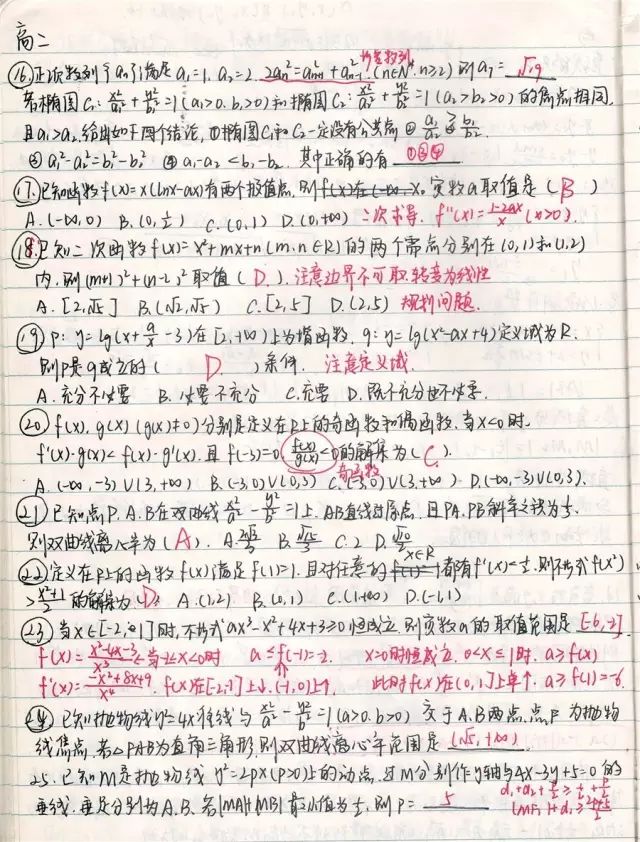 高二
⑯正项数列{an}满足a₁=1, a₂=2, 2an²=an+1²+an-1² (n∈N*, n≥2) 则a₇= √19
等差数列
若椭圆C₁: x²/a₁²+y²/b₁²=1(a₁>0, b₁>0)和椭圆C₂: x²/a₂²+y²/b₂²=1(a₂>b₂>0)的焦点相同,
且a₁>a₂, 给出如下四个结论, ①椭圆C₁和C₂一定没有公共点 ②a₁/a₂>b₁/b₂
③a₁²-a₂²=b₁²-b₂² ④a₁-a₂<b₁-b₂. 其中正确的有 ①③④
⑰已知函数f(x)=x(lnx-ax)有两个极值点, 则实数a取值是(B)
A.(-∞,0) B.(0,1/2) C.(0,1) D.(0,+∞) 二次求导. f''(x)=1-2ax/x (x>0)
⑱已知二次函数f(x)=x²+mx+n(m,n∈R)的两个零点分别在(0,1)和(1,2)
内, 则(m+1)²+(n-2)²取值(D). 注意边界不可取转变为线性
A.[2,√5] B.(√2,√5) C.[2,5] D.(2,5) 规划问题.
⑲p: y=lg(x+a/x-3)在[2,+∞)上为增函数, q: y=lg(x²-ax+4)定义域为R.
则p是q成立的(D)条件. 注意定义域.
A.充分不必要 B.必要不充分 C.充要 D.既不充分也不必要.
⑳f(x), g(x)(g(x)≠0)分别是定义在R上的奇函数和偶函数, 当x<0时,
f'(x)·g(x)<f(x)·g'(x), 且f(-3)=0, f(x)/g(x)<0的解集为(C.)
奇函数
A.(-∞,-3)∪(3,+∞) B.(-3,0)∪(0,3) C.(-3,0)∪(3,+∞) D.(-∞,-3)∪(0,3).
㉑已知点P.A.B在双曲线x²/a²-y²/b²=1上, AB直线过原点, 且PA.PB斜率之积为1/3.
则双曲线离心率为(A). A.2√3/3 B.√15/3 C.2 D.√10/2
㉒定义在R上的函数f(x)满足f(1)=1, 且对任意的x∈R都有f'(x)<1/2, 则不等式f(x²)
>x²+1/2的解集为(D) A.(1,2) B.(0,1) C.(1,+∞) D.(-1,1)
㉓当x∈[-2,1]时, 不等式ax³-x²+4x+3≥0恒成立, 则实数a的取值范围是 [-6,-2]
f(x)=x²-4x-3/x³ ←当-2≤x<0时 a≤f(-1)=-2. x=0时恒成立. 0<x≤1时. a≥f(x)
f'(x)=-x²+8x+9/x⁴. f(x)在[-2,-1]上↓, (-1,0)上↑. 此时f(x)在(0,1]上单↑, a≥f(1)=-6.
㉔已知抛物线y²=4x准线与x²/a²-y²/b²=1(a>0, b>0)交于A.B两点, 点F为抛物
线焦点, 若△FAB为直角三角形, 则双曲线离心率范围是 (√5,+∞)
25. 已知M是抛物线y²=2px(p>0)上的动点, 过M分别作y轴与4x-3y+5=0的
垂线, 垂足分别为A.B. 若|MA|+|MB|最小值为1/2, 则p= 5
d₁+d₂+p/2≥1/2+p/2
|MF|+d₁≥2p+5/5